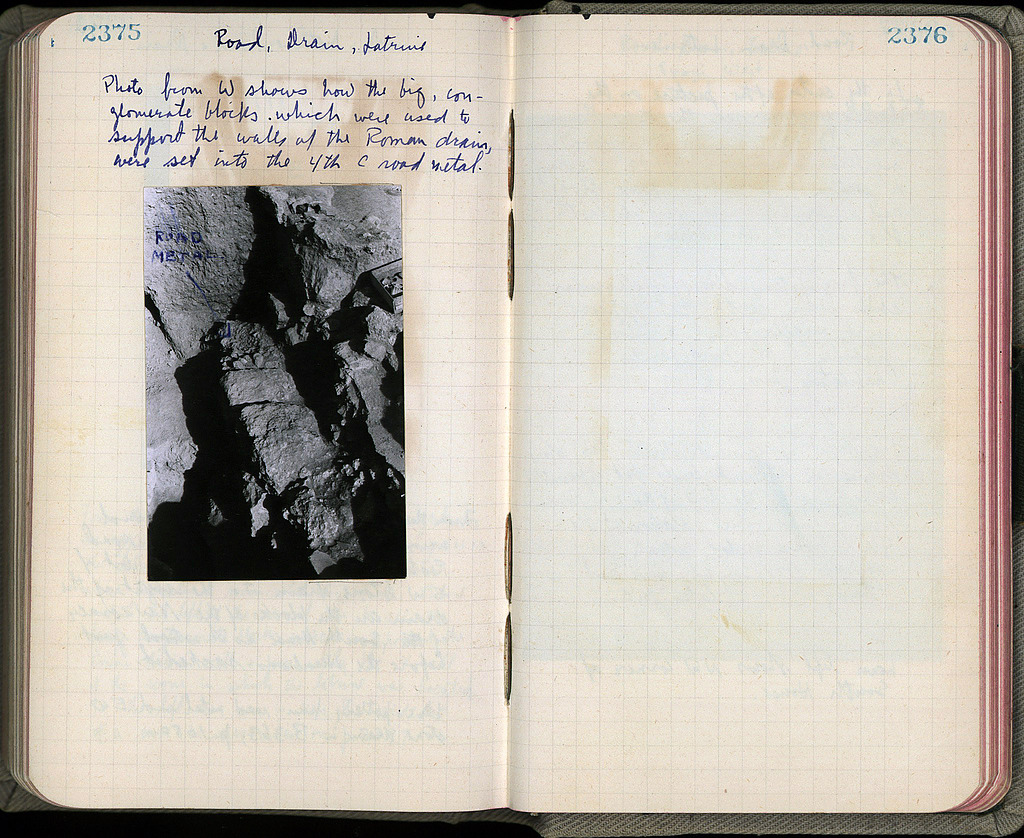 2375
Road, Drain, Latrine
Photo from W shows how the big, con-
glomerate blocks which were used to
support the walls of the Roman drain,
were set into the 4th C road metal.
ROAD
METAL
2376